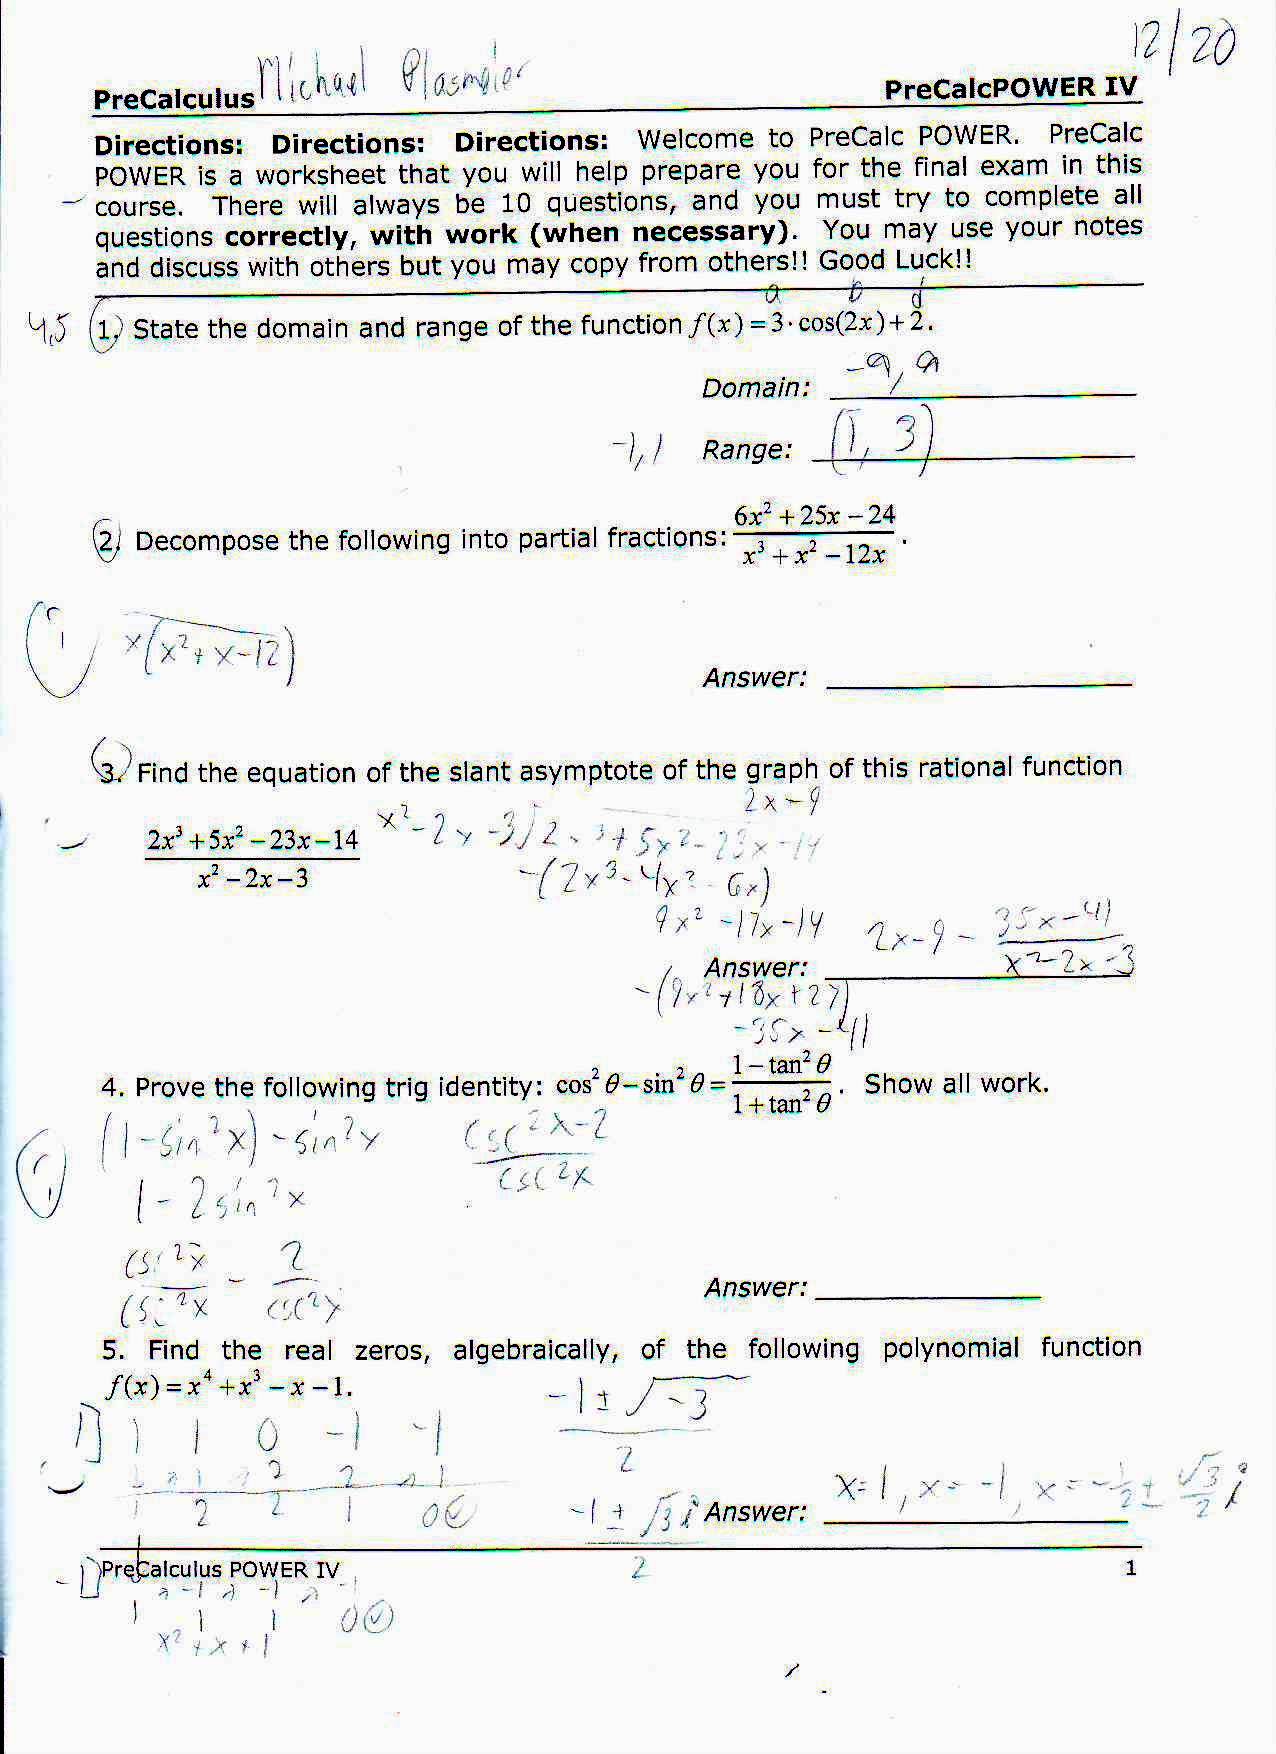 12/20
PreCalculus Michael Plasmeier PreCalcPOWER IV
Directions: Directions: Directions: Welcome to PreCalc POWER. PreCalc
POWER is a worksheet that you will help prepare you for the final exam in this
course. There will always be 10 questions, and you must try to complete all
questions correctly, with work (when necessary). You may use your notes
and discuss with others but you may copy from others!! Good Luck!!
a b d
4.5 1. State the domain and range of the function f(x) = 3·cos(2x)+2.
Domain: -9, 9
-1, 1 Range: (1, 3)
2. Decompose the following into partial fractions: (6x² + 25x − 24)/(x³ + x² − 12x).
x(x² + x - 12)
Answer:
3. Find the equation of the slant asymptote of the graph of this rational function
2x - 9
(2x³ + 5x² − 23x − 14)/(x² − 2x − 3) x² - 2x - 3 2x³ + 5x² - 23x - 14
-(2x³ - 4x² - 6x)
9x² - 17x - 14 2x - 9 - (35x - 41)/(x² - 2x - 3)
Answer:
-(9x² + 18x + 27)
-35x - 41
4. Prove the following trig identity: cos²θ − sin²θ = (1 − tan²θ)/(1 + tan²θ). Show all work.
(1 - sin²x) - sin²x (csc²x - 2)/(csc²x)
1 - 2sin²x
csc²x/csc²x - 2/csc²x
Answer:
5. Find the real zeros, algebraically, of the following polynomial function
f(x) = x⁴ + x³ − x − 1.
1] 1 1 0 -1 -1 (-1 ± √-3)/2
1 2 2 1
1 2 2 1 0 (-1 ± √3 i)/2 Answer: x=1, x=-1, x=-1/2 ± √3/2 i
PreCalculus POWER IV 1
-1] -1 -1 -1
1 1 1 0
x² + x + 1